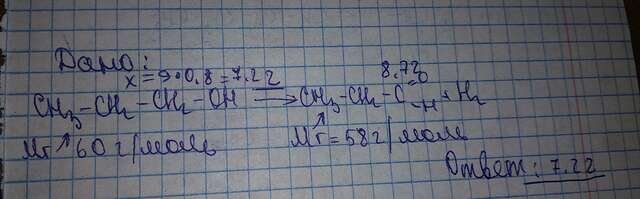 Дано:
x = 9·0,8 = 7.2г 8.7г
CH₃-CH₂-CH₂-OH → CH₃-CH₂-C=O-H + H₂
Mr 60 г/моль Mr = 58 г/моль
Ответ: 7.2г